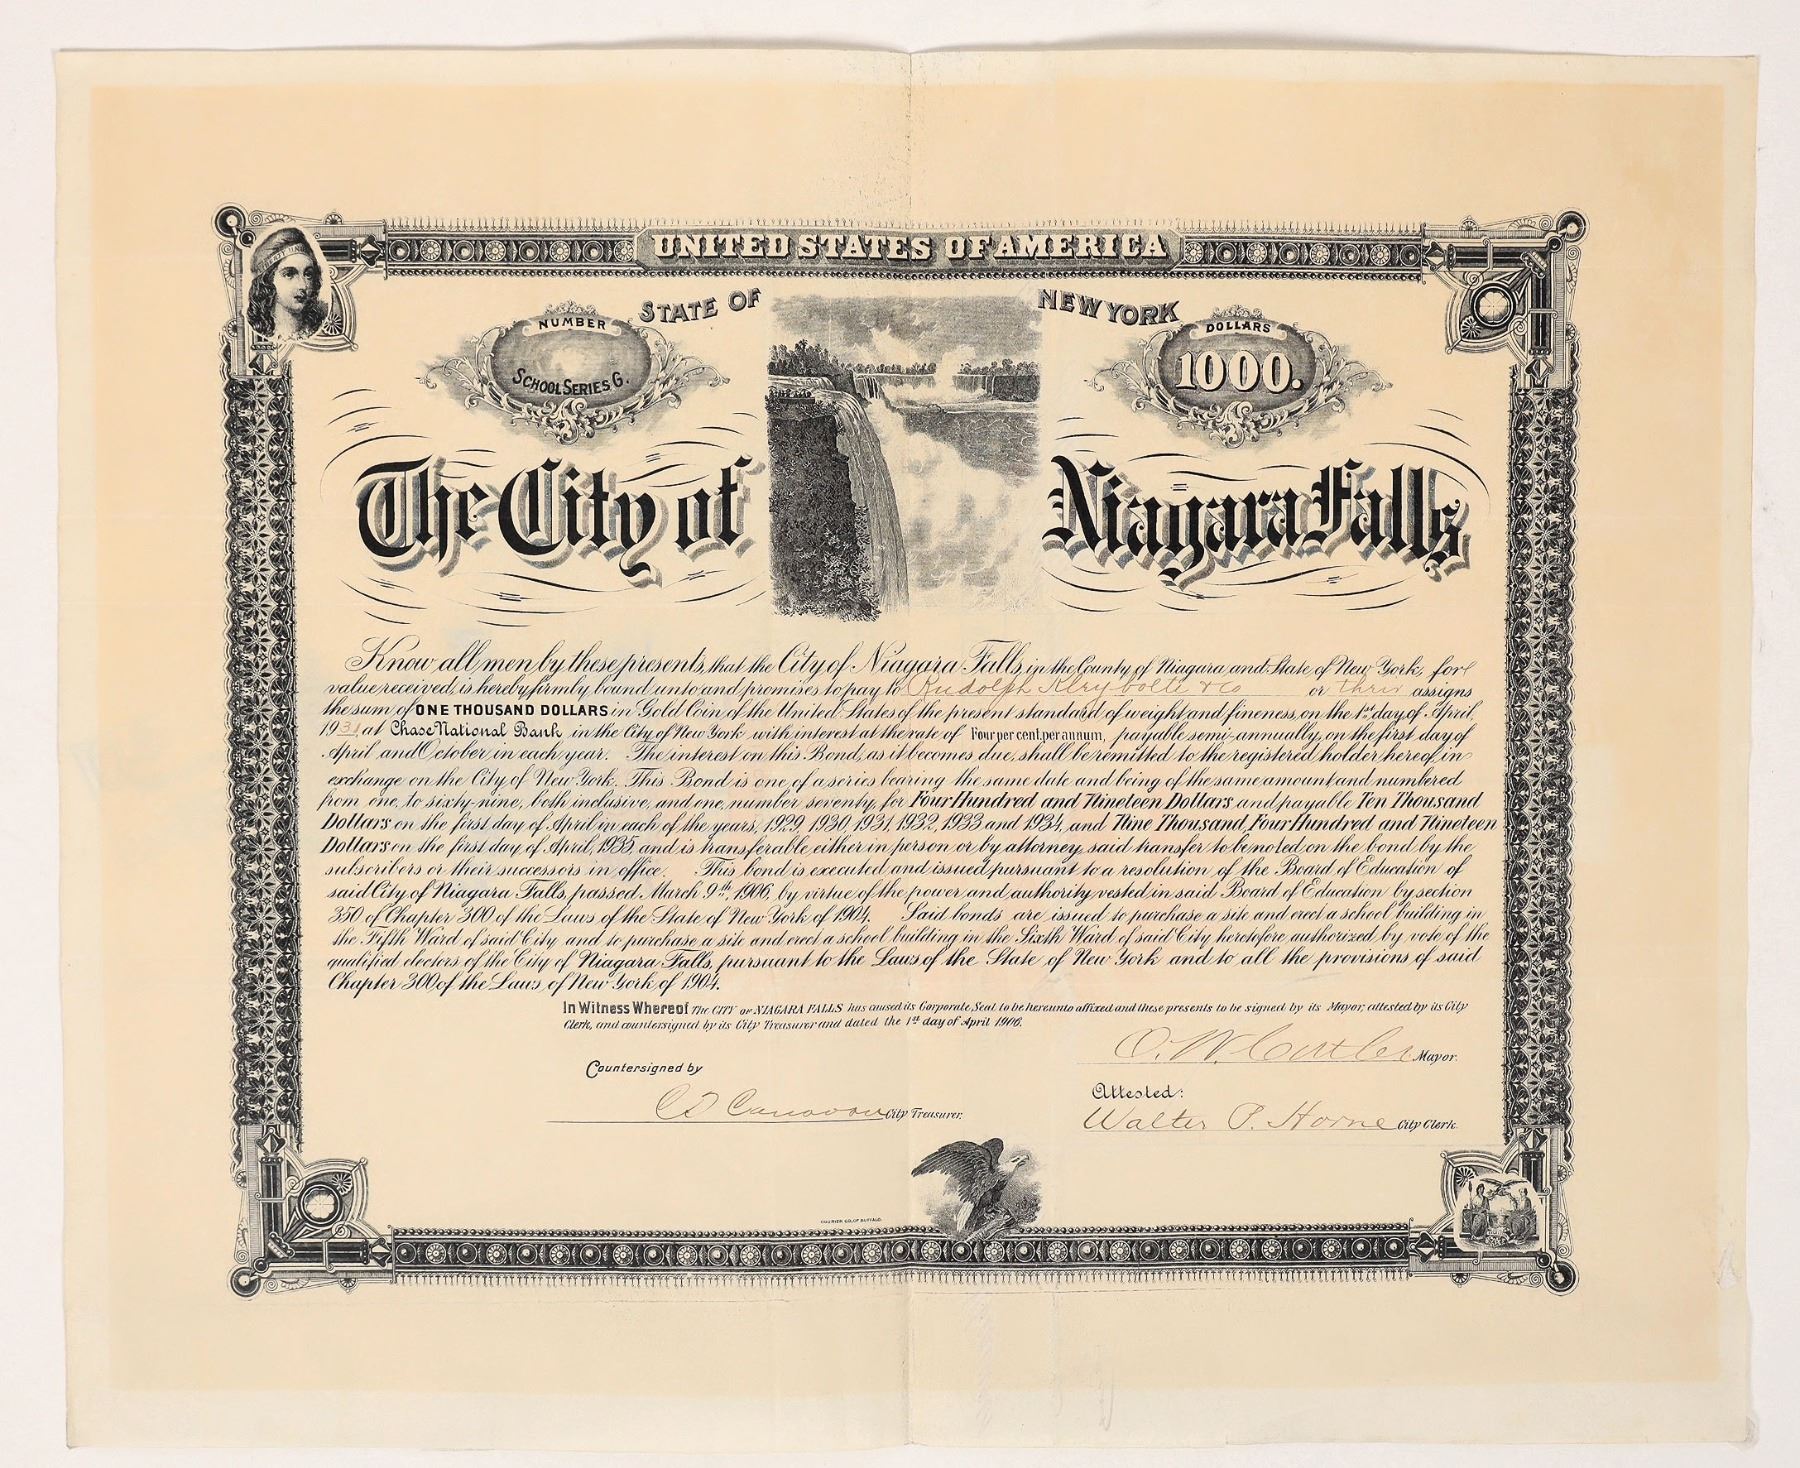 UNITED STATES OF AMERICA
STATE OF NEW YORK
NUMBER
SCHOOL SERIES G.
DOLLARS
1000.
The City of Niagara Falls
Know all men by these presents, that the City of Niagara Falls, in the County of Niagara and State of New York, for
value received, is hereby firmly bound unto and promises to pay to Rudolph Kleybolte & Co or their assigns
the sum of ONE THOUSAND DOLLARS in Gold Coin of the United States of the present standard of weight and fineness, on the 1st day of April,
1931, at Chase National Bank, in the City of New York with interest at the rate of Four per cent. per annum, payable semi-annually, on the first day of
April and October in each year. The interest on this Bond, as it becomes due, shall be remitted to the registered holder hereof, in
exchange on the City of New York. This Bond is one of a series bearing the same date and being of the same amount and numbered
from one, to sixty-nine, both inclusive, and one, number seventy, for Four Hundred and Nineteen Dollars, and payable Ten Thousand
Dollars on the first day of April in each of the years, 1929, 1930, 1931, 1932, 1933 and 1934, and Nine Thousand, Four Hundred and Nineteen
Dollars on the first day of April, 1935, and is transferable either in person or by attorney, said transfer to be noted on the bond by the
subscribers or their successors in office. This bond is executed and issued pursuant to a resolution of the Board of Education of
said City of Niagara Falls, passed March 9th 1906, by virtue of the power and authority vested in said Board of Education by section
350 of Chapter 300 of the Laws of the State of New York of 1904. Said bonds are issued to purchase a site and erect a school building in
the Fifth Ward of said City and to purchase a site and erect a school building in the Sixth Ward of said City heretofore authorized by vote of the
qualified electors of the City of Niagara Falls, pursuant to the Laws of the State of New York and to all the provisions of said
Chapter 300 of the Laws, of New York of 1904.
In Witness Whereof The CITY OF NIAGARA FALLS has caused its Corporate Seal to be hereunto affixed and these presents to be signed by its Mayor, attested by its City
Clerk, and countersigned by its City Treasurer and dated the 1st day of April 1906.
O. W. Cutler Mayor.
Countersigned by
Attested:
City Treasurer.
Walter P. Horne City Clerk.
COURIER CO. OF BUFFALO.